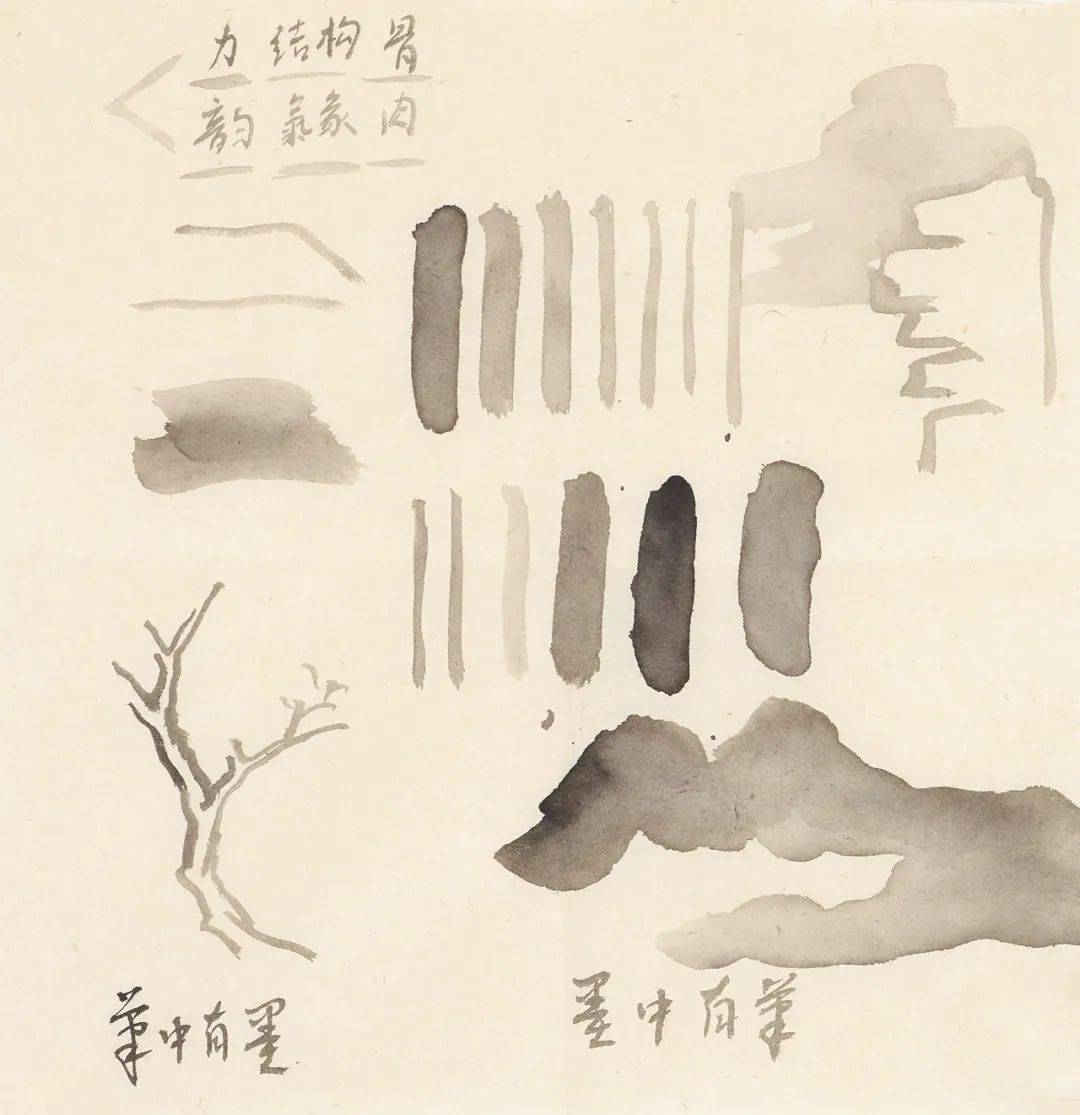 力 结构 骨
韵 氣象 肉
筆中有墨
墨中有筆